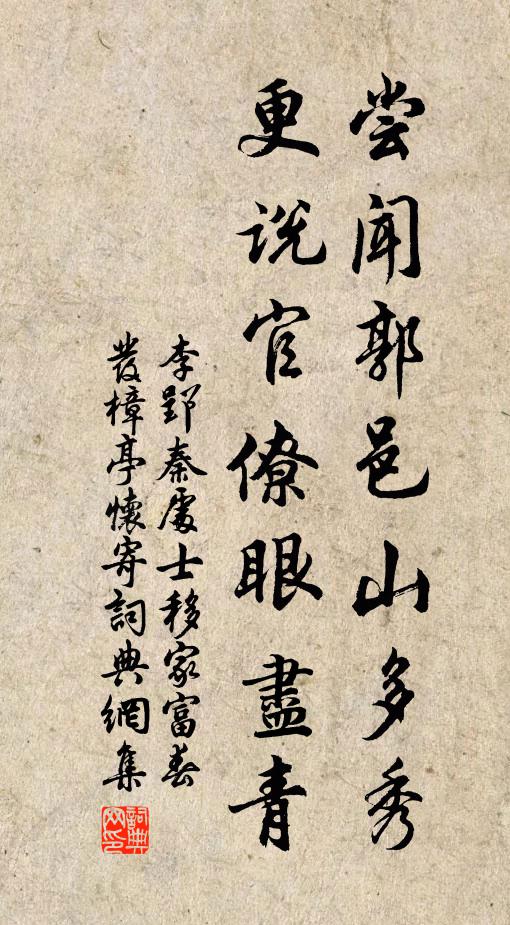 尝闻郭邑山多秀
更说官僚眼盡青
李郢秦處士移家富春
發樟亭懷寄詞典網集
詞典网印